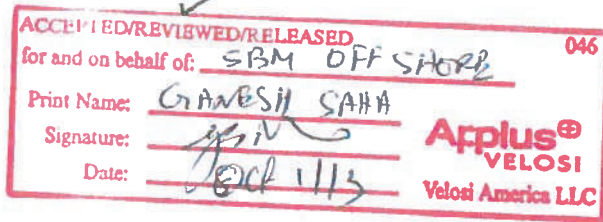 ACCEPTED/REVIEWED/RELEASED 046
for and on behalf of: SBM OFFSHORE
Print Name: GANESH SAHA
Signature:
Date: Oct 1/13
Applus⊕
VELOSI
Velosi America LLC